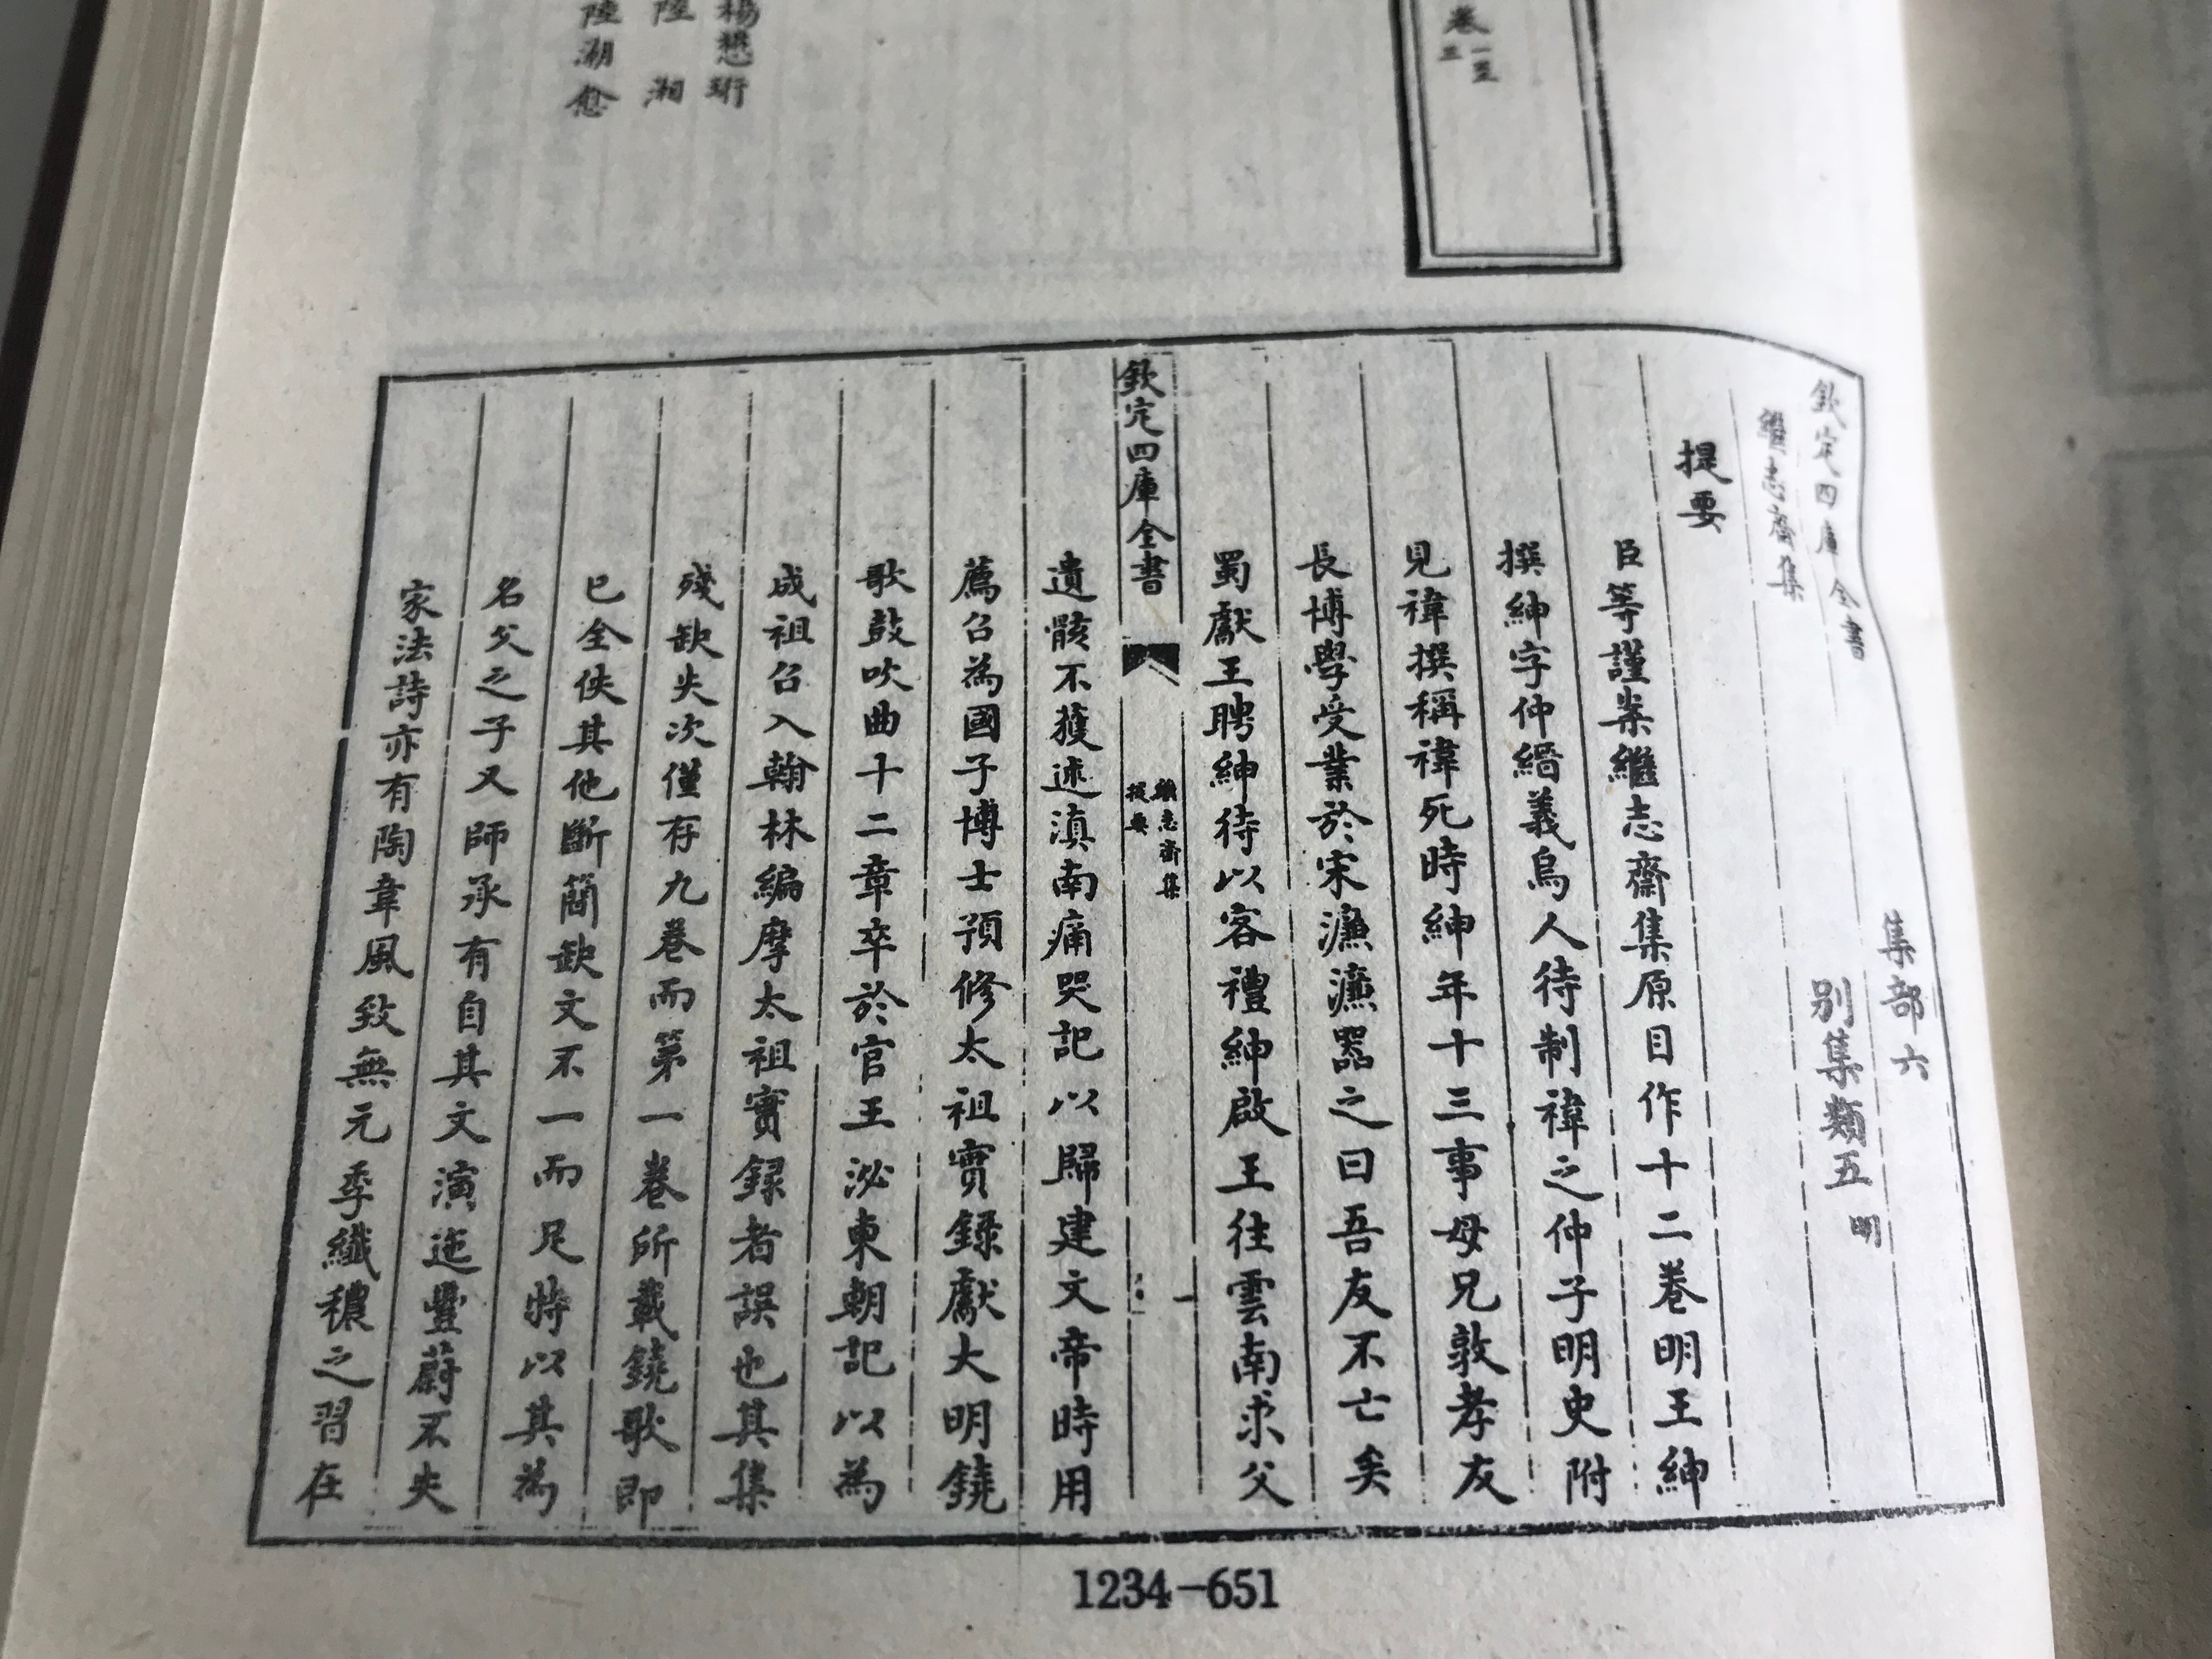 卷一至
三
楊懋珩
陸湘
陸潮愈
欽定四庫全書
集部六
繼志齋集
別集類五明
提要
臣等謹案繼志齋集原目作十二卷明王紳
撰紳字仲縉義烏人待制禕之仲子明史附
見禕撰稱禕死時紳年十三事母兄敦孝友
長博學受業於宋濂濂器之曰吾友不亡矣
蜀獻王聘紳待以客禮紳啟王往雲南求父
欽定四庫全書
繼志齋集
提要
一
遺骸不獲述滇南痛哭記以歸建文帝時用
薦召為國子博士預修太祖實錄獻大明鐃
歌鼓吹曲十二章卒於官王泌東朝記以為
成祖召入翰林編摩太祖實録者誤也其集
殘缺失次僅存九卷而第一卷所載鐃歌即
已全佚其他斷簡缺文不一而足特以其為
名父之子又師承有自其文演迤豐蔚不失
家法詩亦有陶韋風致無元季纖穠之習在
1234-651